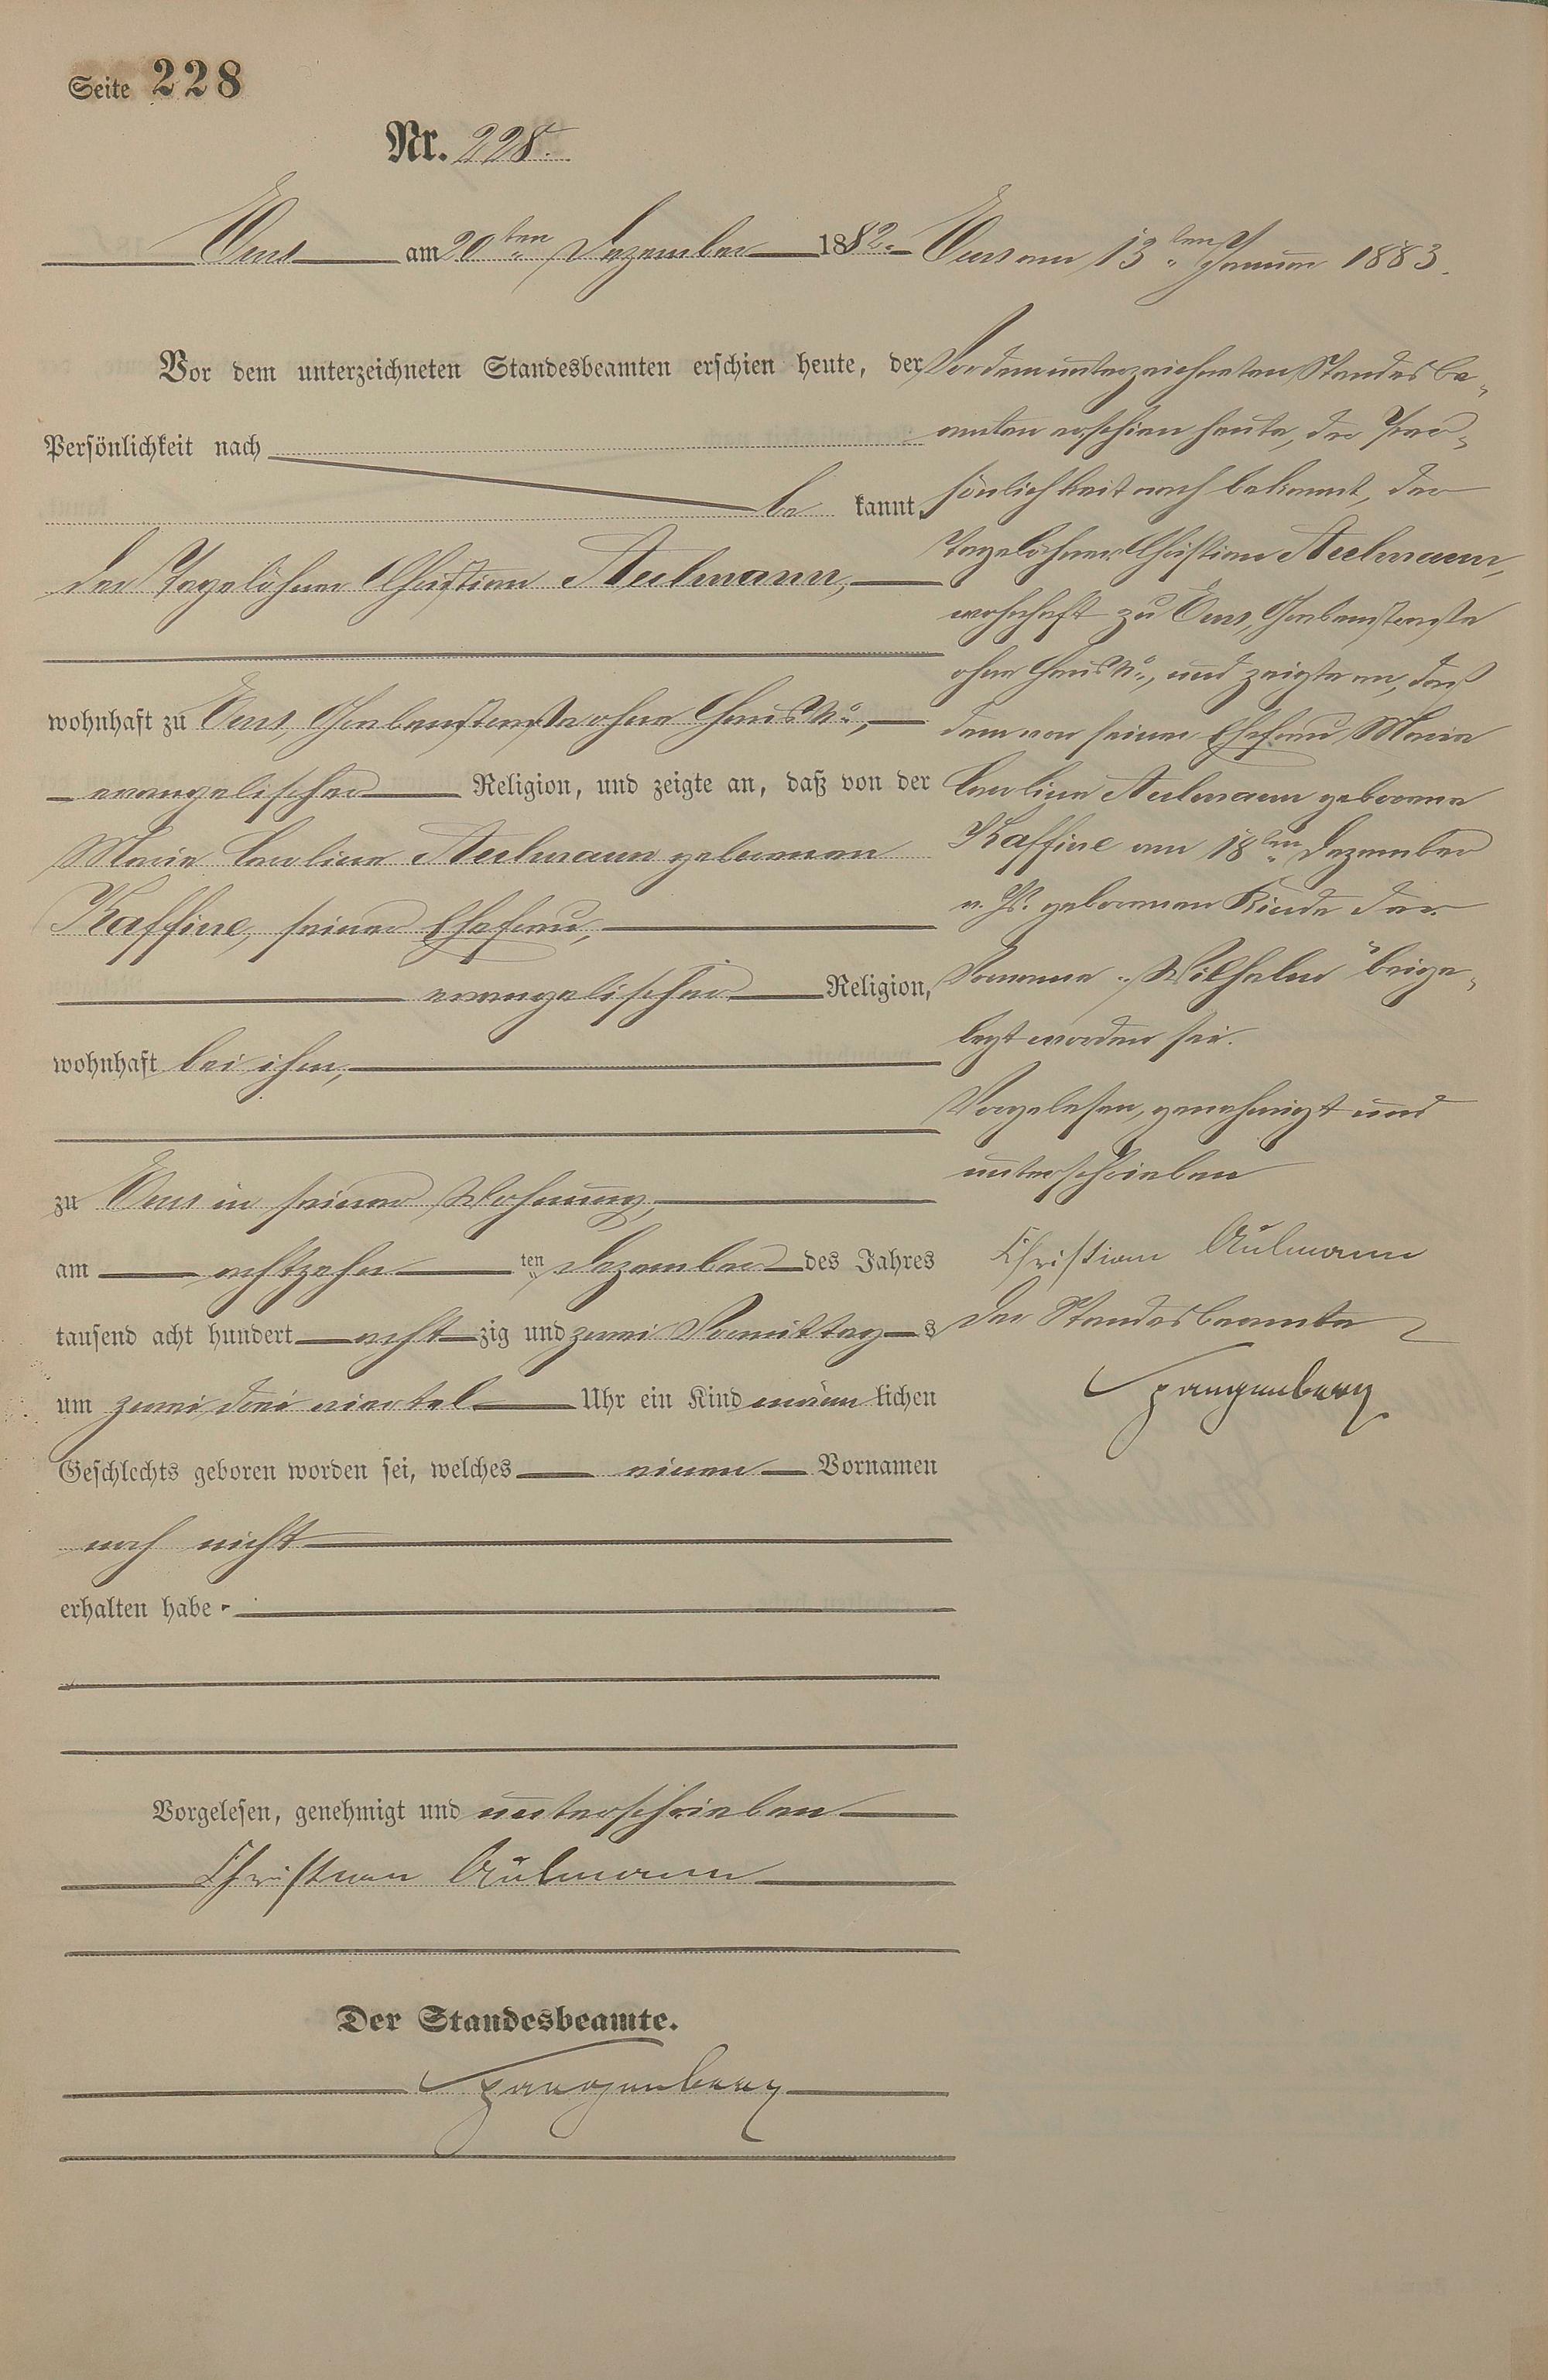 Seite 228
Nr. 228.
Ems am 20ten Dezember 1882.
Vor dem unterzeichneten Standesbeamten erschien heute, der
Persönlichkeit nach
be kannt,
der Tagelöhner Christian Aulmann,
wohnhaft zu Ems, Grabenstraße ohne Haus No,
evangelischer Religion, und zeigte an, daß von der
Marie Caroline Aulmann geborenen
Kaffine, seiner Ehefrau,
evangelischer Religion,
wohnhaft bei ihm,
zu Ems in seiner Wohnung,
am achtzehn ten Dezember des Jahres
tausend acht hundert acht zig und zwei Vormittag s
um zwei drei viertel Uhr ein Kind männ lichen
Geschlechts geboren worden sei, welches einen Vornamen
noch nicht
erhalten habe.
Vorgelesen, genehmigt und unterschrieben
Christian Aulmann
Der Standesbeamte.
Spangenberg
Ems am 13ten Januar 1883.
Vor dem unterzeichneten Standesbe-
amten erschien heute, der Per-
sönlichkeit nach bekannt, der
Tagelöhner Christian Aulmann,
wohnhaft zu Ems, Grabenstraße
ohne Haus No, und zeigte an, daß
dem von seiner Ehefrau Marie
Caroline Aulmann geborene
Kaffine am 18ten Dezember
v. Js. geborenen Kinde der
Vorname "Wilhelm" beige-
legt worden sei.
Vorgelesen, genehmigt und
unterschrieben
Christian Aulmann
Der Standesbeamte
Spangenberg